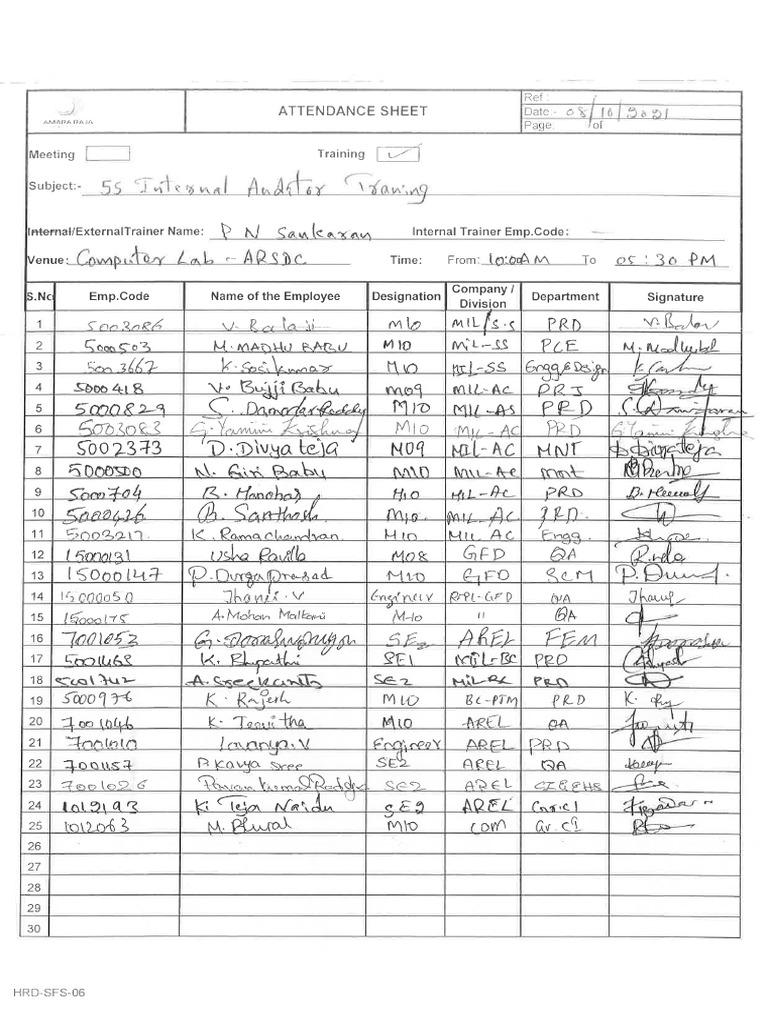 AMARA RAJA
ATTENDANCE SHEET
Ref :
Date:- 08/10/2021
Page: of
Meeting Training ✓
Subject:- 5S Internal Auditor Traning
Internal/ExternalTrainer Name: P N Sankaran Internal Trainer Emp.Code: —
Venue: Computer Lab - ARSDC Time: From: 10:00AM To 05:30 PM
S.No Emp.Code Name of the Employee Designation Company / Division Department Signature
1 5003086 V. Balaji M10 MIL/S.S PRD
2 5000503 M. MADHU BABU M10 MIL-SS PCE
3 5003667 K. Sasikumar M10 MIL-SS Engg&Design
4 5000418 V. Bujji Babu M09 MIL-AC PRJ
5 5000829 S. Damodar Reddy M10 MIL-AS PRD
6 5003083 G. Yamini Krishna M10 MIL-AC PRD
7 5002373 D. Divya teja M09 MIL-AC MNT D Divyateja
8 5000500 N. Giri Babu M10 MIL-AC mnt
9 5000704 B. Manohar M10 MIL-AC PRD
10 5000426 B. Santhosh M10. MIL AC PRD.
11 5003217 K. Ramachandran. M10 MIL AC Engg.
12 15000131 Usha Ravilla M08 GFD QA
13 15000147 P. Durga prasad M10 GFD SCM
14 15000050 Jhansi. V Engineer GFD QA
15 15000175 A. Mohan M-10 " QA
16 7001053 G. SE2 AREL FEM
17 5001468 K. Bhupathi SE1 MIL-BC PRD
18 5001742 A. Sreekanth SE2 MIL-BC PRD
19 5000976 K. Rajesh M10 BC-PTM PRD
20 7001046 K. Tejvitha M10 AREL QA
21 7001010 Lavanya. V Engineer AREL PRD
22 7001157 P. Kavya Sree SE2 AREL QA
23 7001026 Pavan Kumar Reddy SE2 AREL
24 1012193 K. Teja Naidu SE2 AREL
25 1012063 M. M10 COM
26
27
28
29
30
HRD-SFS-06